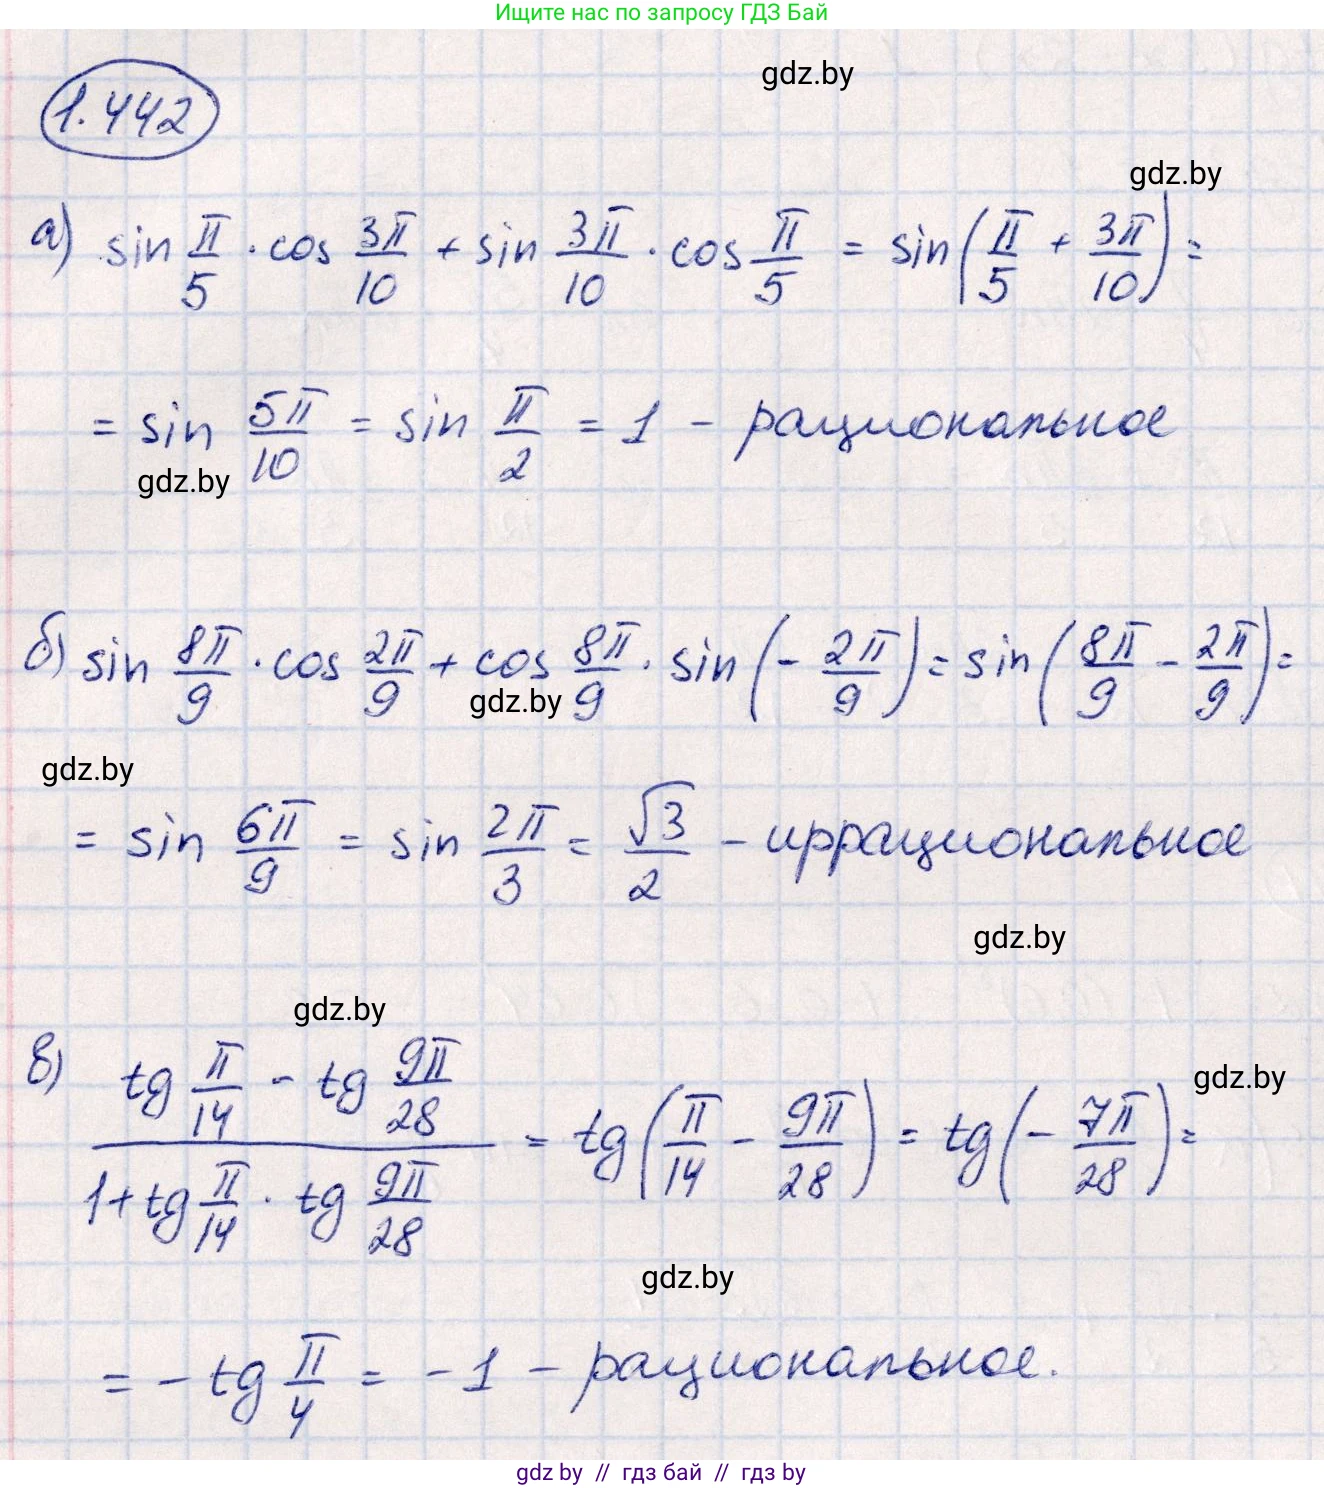 Ищите нас по запросу ГДЗ Бай
gdz.by
1.442
gdz.by
а) sin π/5 · cos 3π/10 + sin 3π/10 · cos π/5 = sin(π/5 + 3π/10) =
= sin 5π/10 = sin π/2 = 1 - рациональное
gdz.by
б) sin 8π/9 · cos 2π/9 + cos 8π/9 · sin(- 2π/9) = sin(8π/9 - 2π/9) =
gdz.by
gdz.by
= sin 6π/9 = sin 2π/3 = √3/2 - иррациональное
gdz.by
gdz.by
в) (tg π/14 - tg 9π/28)/(1 + tg π/14 · tg 9π/28) = tg(π/14 - 9π/28) = tg(- 7π/28) =
gdz.by
gdz.by
= - tg π/4 = - 1 - рациональное.
gdz by // гдз бай // гдз by